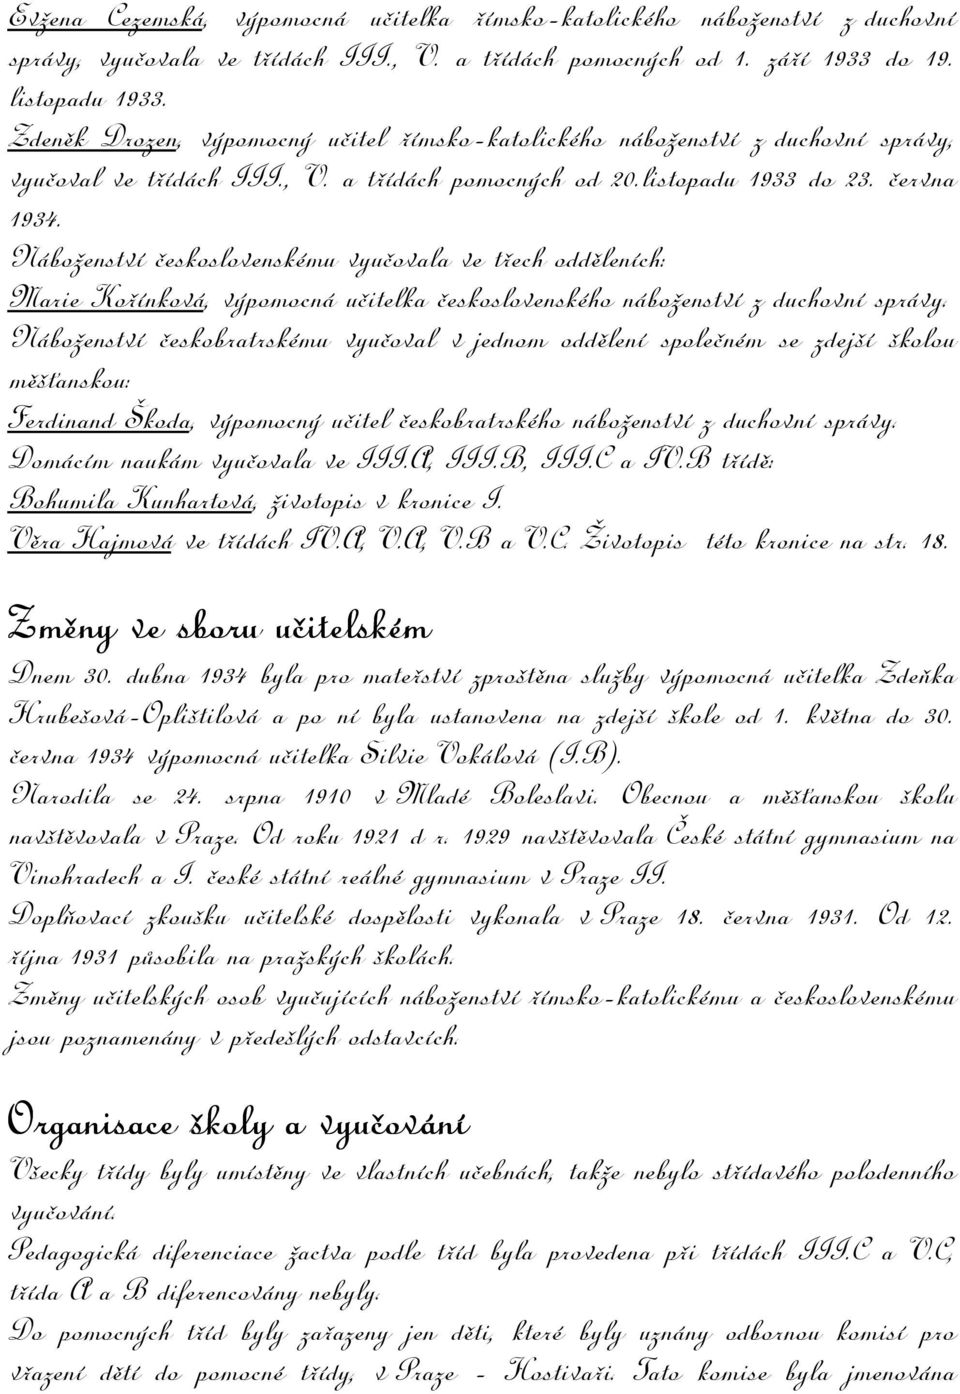 Evžena Cezemská, výpomocná učitelka římsko-katolického náboženství z duchovní
správy, vyučovala ve třídách III., V. a třídách pomocných od 1. září 1933 do 19.
listopadu 1933.
Zdeněk Drozen, výpomocný učitel římsko-katolického náboženství z duchovní správy,
vyučoval ve třídách III., V. a třídách pomocných od 20.listopadu 1933 do 23. června
1934.
Náboženství československému vyučovala ve třech odděleních:
Marie Kořínková, výpomocná učitelka československého náboženství z duchovní správy.
Náboženství českobratrskému vyučoval v jednom oddělení společném se zdejší školou
měšťanskou:
Ferdinand Škoda, výpomocný učitel českobratrského náboženství z duchovní správy.
Domácím naukám vyučovala ve III.A, III.B, III.C a IV.B třídě:
Bohumila Kunhartová, životopis v kronice I.
Věra Hajmová ve třídách IV.A, V.A, V.B a V.C. Životopis této kronice na str. 18.
Změny ve sboru učitelském
Dnem 30. dubna 1934 byla pro mateřství zproštěna služby výpomocná učitelka Zdeňka
Hrubešová-Oplištilová a po ní byla ustanovena na zdejší škole od 1. května do 30.
června 1934 výpomocná učitelka Silvie Vokálová (I.B).
Narodila se 24. srpna 1910 v Mladé Boleslavi. Obecnou a měšťanskou školu
navštěvovala v Praze. Od roku 1921 d r. 1929 navštěvovala České státní gymnasium na
Vinohradech a I. české státní reálné gymnasium v Praze II.
Doplňovací zkoušku učitelské dospělosti vykonala v Praze 18. června 1931. Od 12.
října 1931 působila na pražských školách.
Změny učitelských osob vyučujících náboženství římsko-katolickému a československému
jsou poznamenány v předešlých odstavcích.
Organisace školy a vyučování
Všecky třídy byly umístěny ve vlastních učebnách, takže nebylo střídavého polodenního
vyučování.
Pedagogická diferenciace žactva podle tříd byla provedena při třídách III.C a V.C,
třída A a B diferencovány nebyly.
Do pomocných tříd byly zařazeny jen děti, které byly uznány odbornou komisí pro
vřazení dětí do pomocné třídy, v Praze - Hostivaři. Tato komise byla jmenována